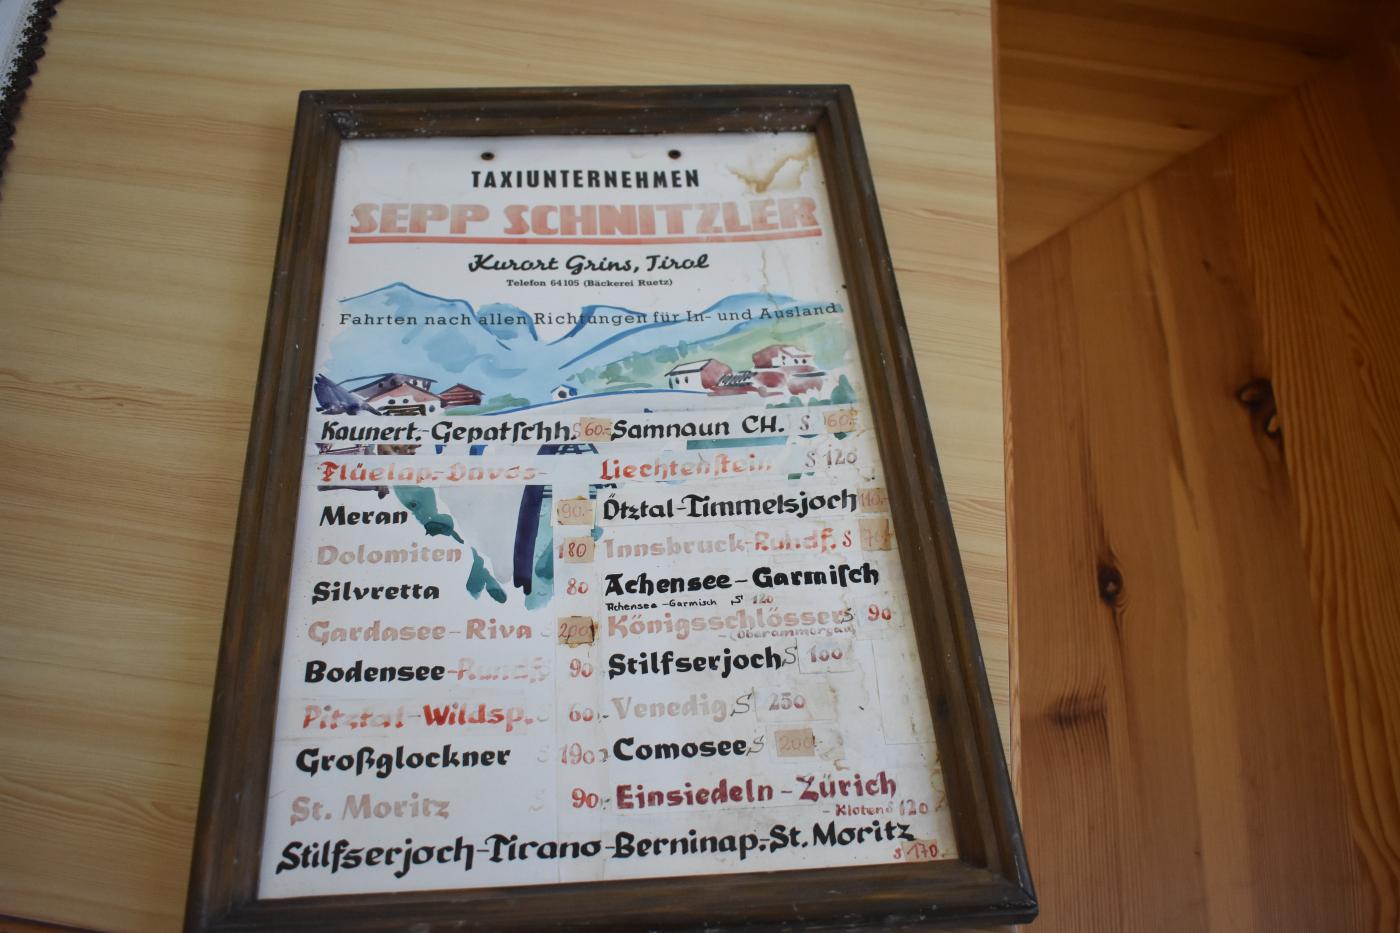 TAXIUNTERNEHMEN
SEPP SCHNITZLER
Kurort Grins, Tirol
Telefon 64105 (Bäckerei Ruetz)
Fahrten nach allen Richtungen für In- und Ausland
Kaunert.-Gepatschh. S 60.- Samnaun CH. S 60.-
Flüelap.-Davos- Liechtenstein S 120
Meran 90.- Ötztal-Timmelsjoch 110.-
Dolomiten 180 Innsbruck-Rundf. S
Silvretta 80 Achensee-Garmisch
Achensee-Garmisch S 120
Gardasee-Riva 200 Königsschlösser S 90
-(Oberammergau)
Bodensee-Rundf. 90 Stilfserjoch S 100
Pitztal-Wildsp. 60.- Venedig S 250
Großglockner 190 Comosee S 200.-
St. Moritz 90.- Einsiedeln-Zürich
-Kloten S 120
Stilfserjoch-Tirano-Berninap.-St. Moritz
S 170.